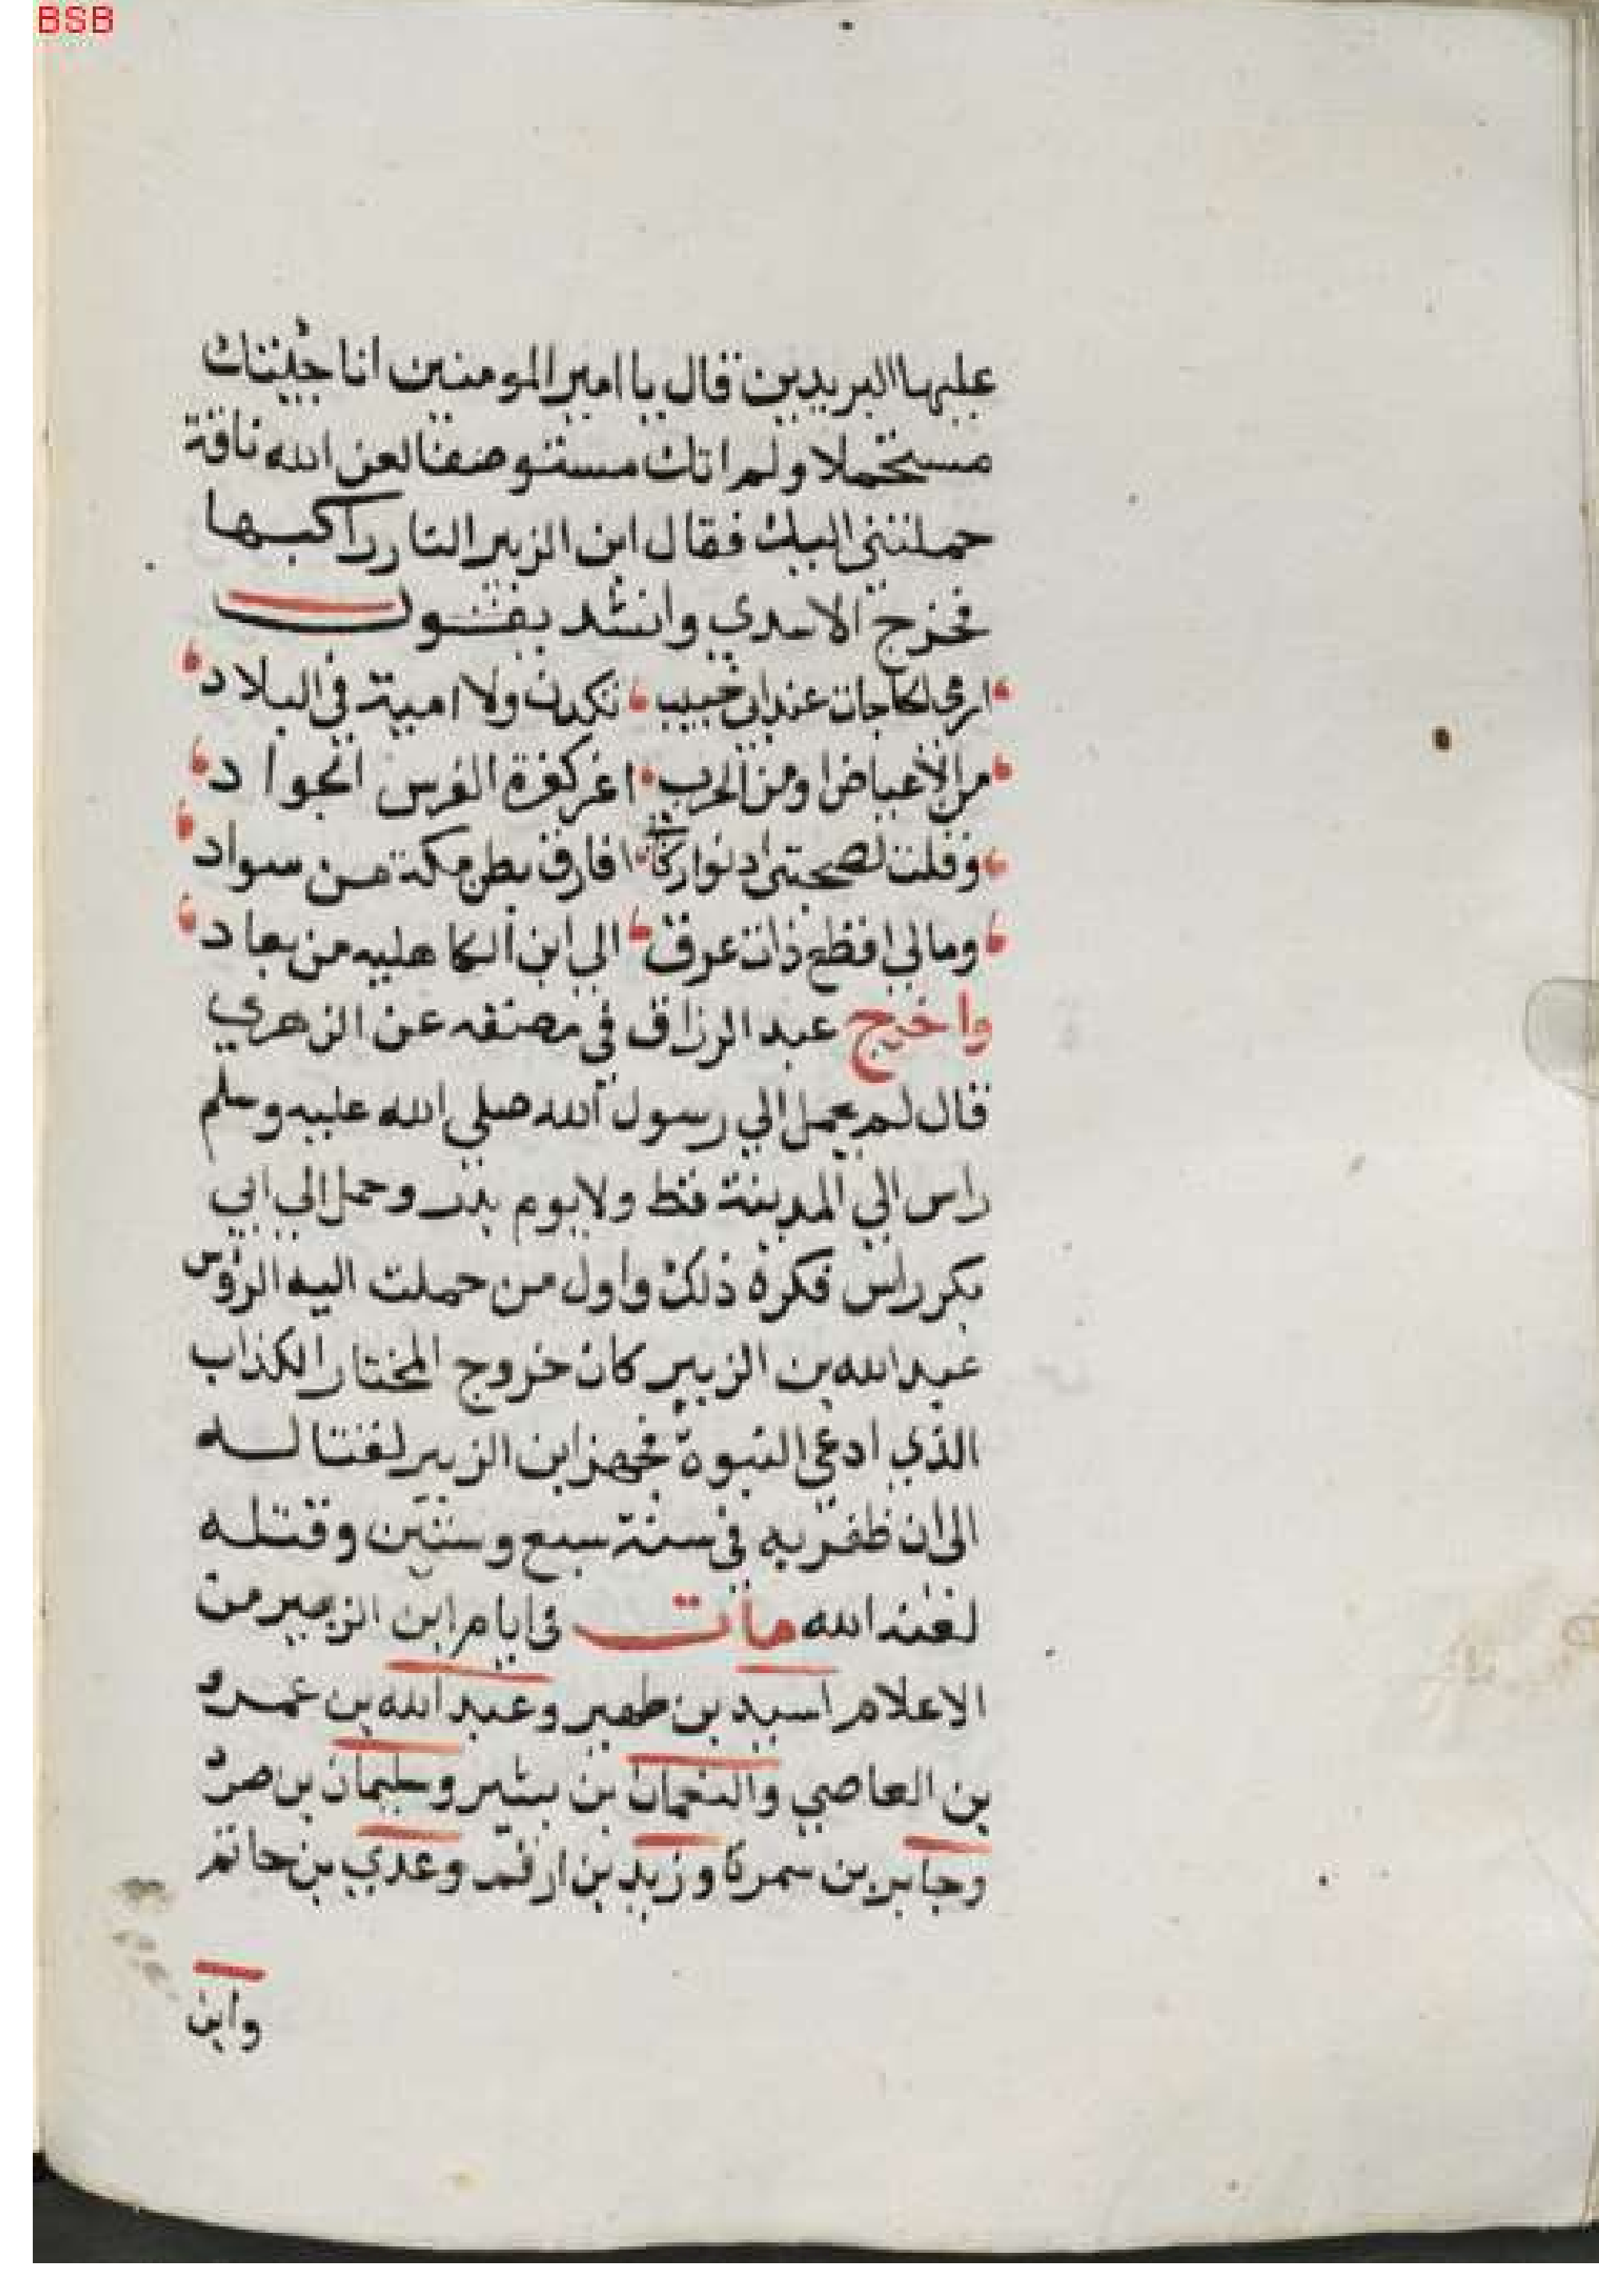 BSB
عليها البريدين قال يا امير المومنين انا جئتك
مستحملا ولم اتك مستوصفا لعن الله ناقة
حملتني اليك فقال ابن الزبير النار راكبها
فخرج الاسدي وانشد يقول
ارى الحاجات عند ابي خبيب نكدن ولا امية في البلاد
من الأعياض او من آل حرب اغر كغرة الفرس الجوا د
وقلت لصحبتي ادنوا ركابي افارق بطن مكة من سواد
ومالي اقطع ذات عرق الي ابن الكاهليه من معاد
واخرج عبد الرزاق في مصنفه عن الزهري
قال لم يحمل الي رسول الله صلي الله عليه وسلم
راس الي المدينة قط ولا يوم بدر وحمل الي ابي
بكر راس فكره ذلك واول من حملت اليه الرؤس
عبد الله بن الزبير كان خروج المختار الكذاب
الذي ادعي النبوة فجهز ابن الزبير لقتاله
الى ان ظفر به في سنة سبع وستين وقتله
لعنه الله مات في ايام ابن الزبير من
الاعلام اسيد بن ظهير وعبد الله بن عمرو
بن العاصي والنعمان بن بشير وسليمان بن صرد
وجابر بن سمرة وزيد بن ارقم وعدي بن حاتم
وابن